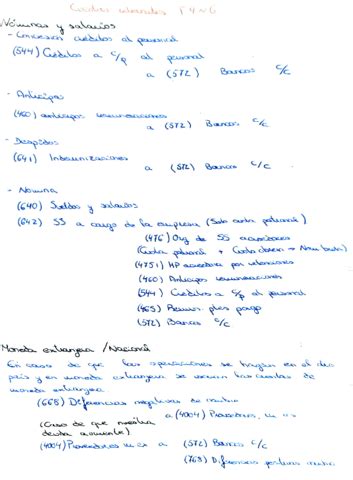 Nóminas y salarios
- Concesión créditos al personal
(544) Créditos a c/p al personal
a (572) Bancos c/c
- Anticipos
(460) anticipos remuneraciones
a (572) Bancos c/c
- Despidos
(641) Indemnizaciones
a (572) Bancos c/c
- Nómina
(640) Sueldos y salarios
(642) SS a cargo de la empresa (Solo cuota patronal)
(476) Org de SS acreedores
(Cuota patronal + Cuota obrera →
(4751) HP acreedora por retenciones
(460) Anticipos remuneraciones
(544) Créditos a c/p al personal
(465) Remun. ptes pago
(572) Bancos c/c
Moneda extranjera / Nacional
En caso de que las operaciones se hagan en el
país y en moneda extranjera se usaran las cuentas de
moneda extranjera
(668) Diferencias negativas de cambio
a (4004) Proveedores, m
(Caso de que nuestra
deuda aumente)
(4004) Proveedores m ex a (572) Bancos c/c
(768) Diferencias positivas cambio